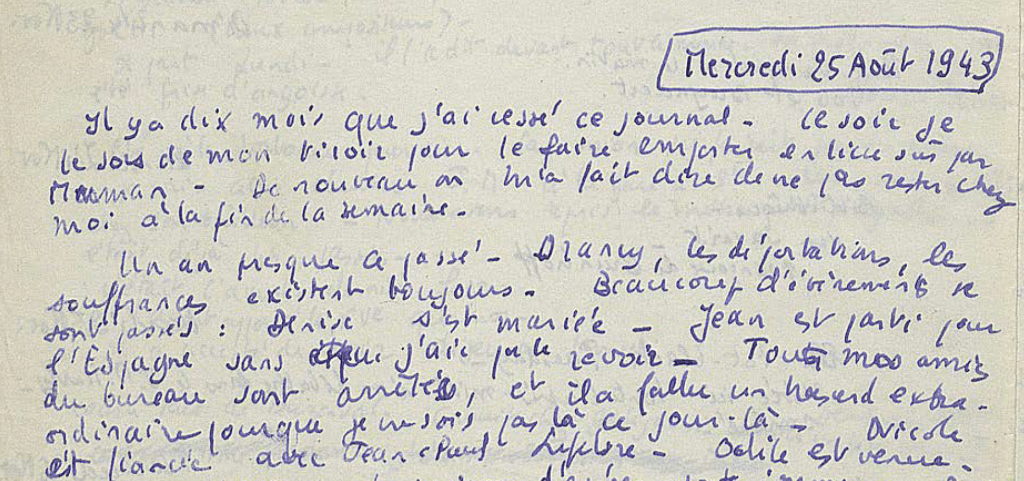 Mercredi 25 Août 1943
Il y a dix mois que j'ai cessé ce journal - Ce soir je
le sors de mon tiroir pour le faire emporter en lieu sûr par
Maman - De nouveau on m'a fait dire de ne pas rester chez
moi à la fin de la semaine.
Un an presque a passé - Drancy, les déportations, les
souffrances existent toujours - Beaucoup d'évènements se
sont passés : Denise s'est mariée - Jean est parti pour
l'Espagne sans que j'aie pu le revoir - Toutes mes amies
du bureau sont arrêtées, et il a fallu un hasard extra-
ordinaire pour que je ne sois pas là ce jour-là - Nicole
est fiancée avec Jean-Paul Odile est venue -